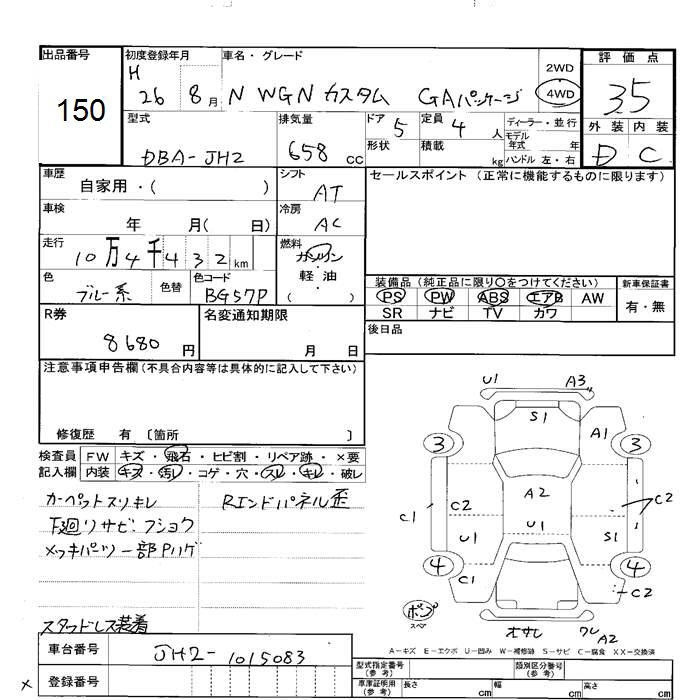 出品番号 初度登録年月 車名・グレード 評価点
150 H 26 8月 N WGN カスタム GAパッケージ 2WD 4WD 3.5
型式 排気量 ドア 5 定員 4人 ディーラー・並行 外装 内装
DBA-JH2 658cc 形状 積載 kg モデル年式 年 ハンドル 左・右 D C
車歴 自家用・( ) シフト AT セールスポイント (正常に機能するものに限ります)
車検 年 月( 日) 冷房 AC
走行 10万4千432km 燃料 ガソリン 軽油 ( )
色 ブルー系 色替 色コード BG57P
装備品 (純正品に限り○をつけてください) 新車保証書
PS PW ABS エアB AW 有・無
SR ナビ TV カワ
R券 8680円 名変通知期限 月 日 後日品
注意事項申告欄 (不具合内容等は具体的に記入して下さい)
修復歴 有 〔箇所 〕
検査員 FW キズ・飛石・ヒビ割・リペア跡・×要
記入欄 内装 キズ・汚レ・コゲ・穴・スレ・キレ・破レ
カーペットスリキレ Rエンドパネル歪
下廻リサビ・フショク
メッキパーツ一部Pハゲ
スタッドレス装着
U1 A3
S1
3 A1 3
A2
C1 C2 C2
U1 U1 S1
4 C1 4
C2
ボンプ スペア オサレ ワレ A2
A-キズ E-エクボ U-凹み W-補修跡 S-サビ C-腐食 XX-交換済
車台番号 JH2-1015083 型式指定番号 (参考) 類別区分番号 (参考)
× 登録番号 車庫証明用 (参考) 長さ cm 幅 cm 高さ cm